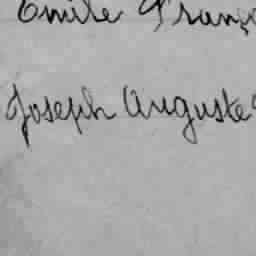 Emile Franço
Joseph Auguste